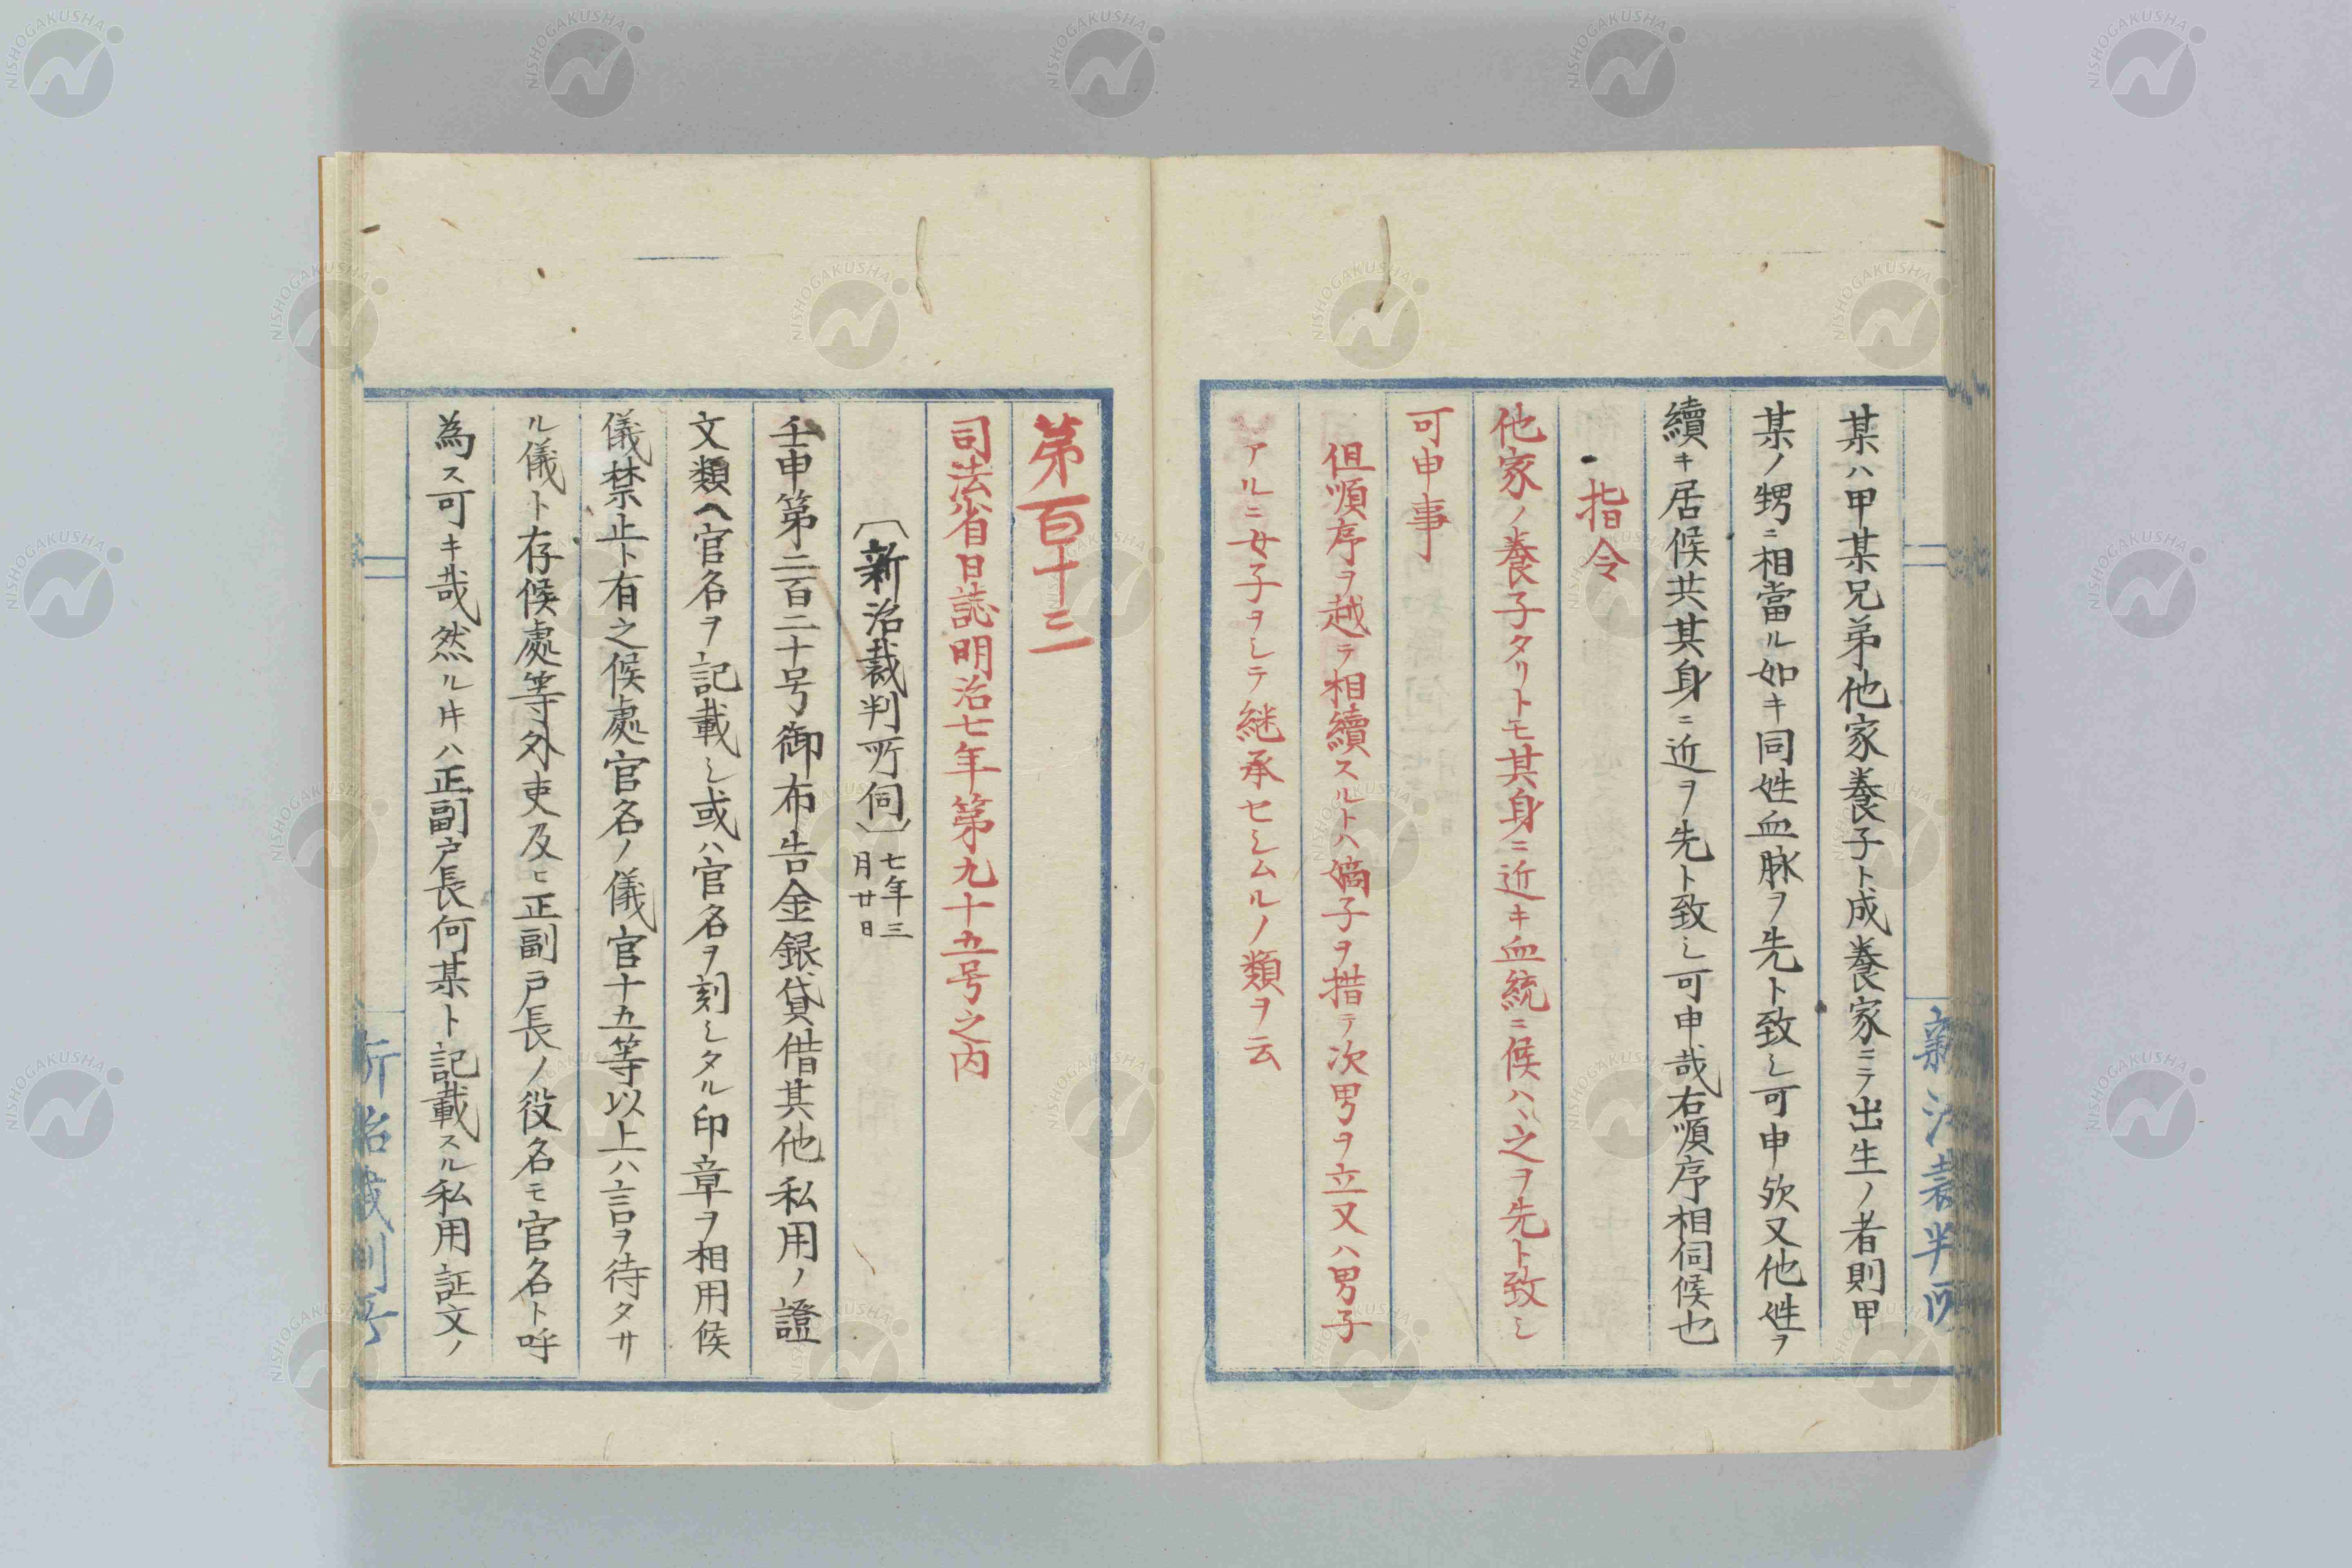 某ハ甲某兄弟他家養子ト成養家ニテ出生ノ者則甲
某ノ甥ニ相當ル如キ同姓血脉ヲ先ト致シ可申欤又他姓ヲ
續キ居候共其身ニ近ヲ先ト致シ可申哉右順序相伺候也
指令
他家ノ養子タリトモ其身ニ近キ血統ニ候ハヽ之ヲ先ト致シ
可申事
但順序ヲ越テ相續スルトハ嫡子ヲ措テ次男ヲ立又ハ男子
アルニ女子ヲシテ継承セシムルノ類ヲ云
第百十三
司法省日誌明治七年第九十五号之内
〔新治裁判所伺〕七年三月廿日
壬申第二百二十号御布告金銀貸借其他私用ノ證
文類ヘ官名ヲ記載シ或ハ官名ヲ刻シタル印章ヲ相用候
儀禁止ト有之候處官名ノ儀官十五等以上ハ言ヲ待タサ
ル儀ト存候處等外吏及ヒ正副戸長ノ役名モ官名ト呼
為ス可キ哉然ル片ハ正副戸長何某ト記載スル私用証文ノ
新治裁判所
新治裁判所
NISHOGAKUSHA